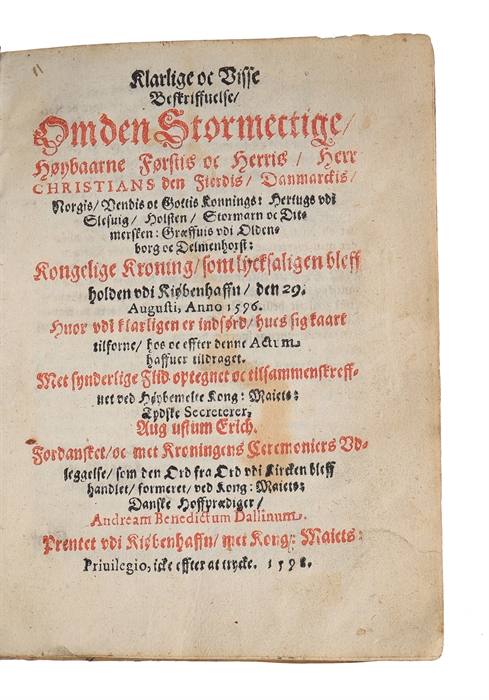 Klarlige oc Visse
Beskriffuelse/
Om den Stormectige/
Høybaarne Førstis oc Herris / Herr
CHRISTIANS den Fierdis / Danmarckis /
Norgis / Vendis oc Gottis Konnings: Hertugs vdi
Slesuig / Holsten / Stormarn oc Dit-
mersken: Græffuis vdi Olden-
borg oc Delmenhorst:
Kongelige Kroning / som lycksaligen bleff
holden vdi Kiøbenhaffn / den 29.
Augusti, Anno 1596.
Huor vdi klarligen er indførd / hues sig haart
tilforne / hos oc effter denne Actum
haffuer tildraget.
Met synderlige Flid optegnet oc tilsammenskreff-
uet ved Høybemelte Kong: Maiets:
Tydske Secreterer,
Augustum Erich.
Fordansket / oc met Kroningens Ceremoniers Vd-
leggelse / som den Ord fra Ord vdi Kircken bleff
handlet / formeret / ved Kong: Maiets:
Danske Hoffprædiger /
Andream Benedictum Dallinum.
Prentet vdi Kiøbenhaffn / met Kong: Maiets:
Priuilegio, icke effter at trycke. 1598.